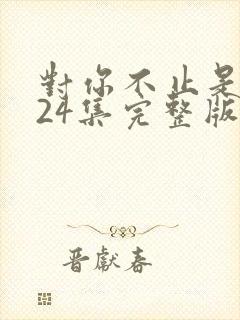 對你不止是
24集完整版
晋獻春